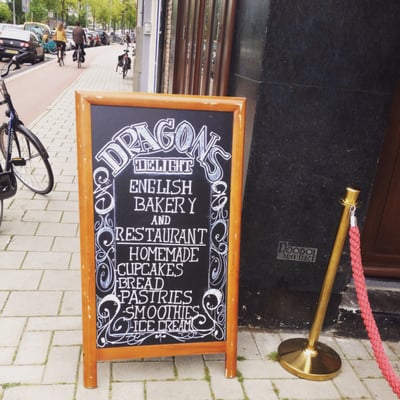 DRAGONS
DELIGHT
ENGLISH
BAKERY
AND
RESTAURANT
HOMEMADE
CUPCAKES
BREAD
PASTRIES
SMOOTHIES
ICE CREAM